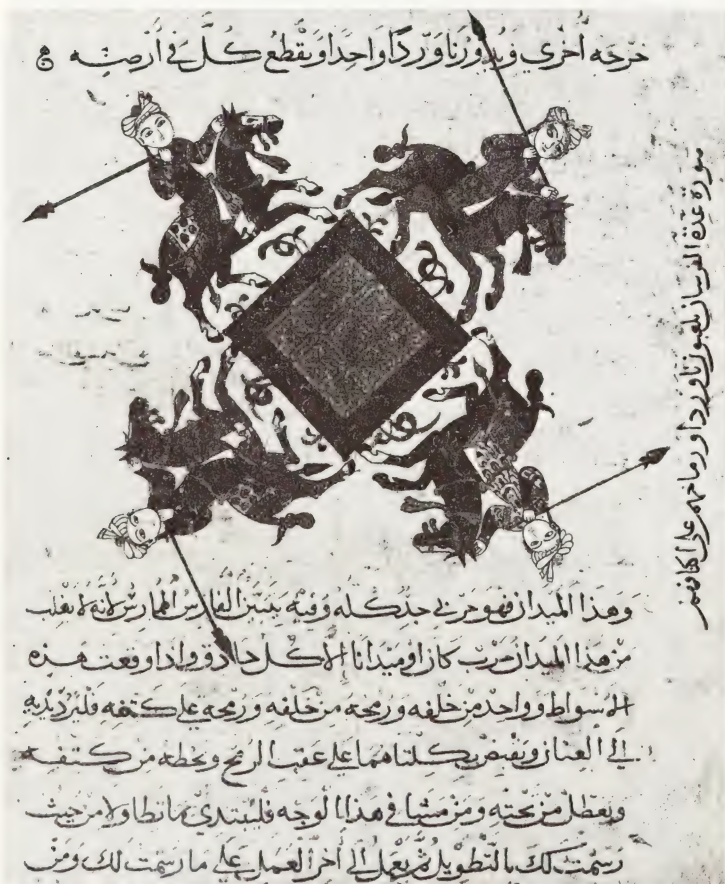 خرجه اخري ويدورنا ورداً واحدا ويقطع كل في ارضه
صورة عدة الفرسان يلعبون ناورد او رماحهم على اكتافهم
وهذا الميدان فهو حربي جد كله وفيه يتبين الفارس الممارس لانه لا يغلب
من هذا الميدان حرب كان او ميدانا الا كل حاذق واذا وقعت هذه
الاسواط وواحد من خلفه ورمحه من خلفه ورمحه على كتفه فليرد يديه
الى العنان ويقبض بكلتاهما على عقب الرمح ويحطه من كتفه
ويعطل من تحته ومن مشيا في هذا الوجه فليبتدي من حيث
رسمت لك بالتطويل ثم يعمل الى اخر العمل على ما رسمت لك ومن